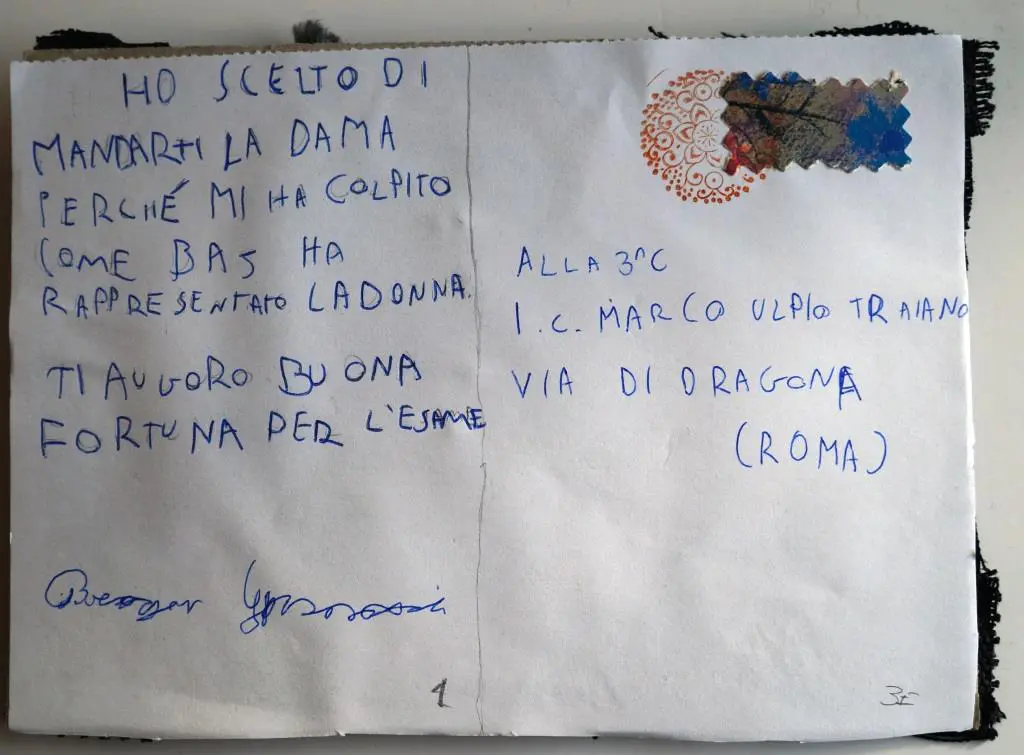 HO SCELTO DI
MANDARTI LA DAMA
PERCHÉ MI HA COLPITO
COME BAS HA
RAPPRESENTATO LA DONNA.
TI AUGORO BUONA
FORTUNA PER L'ESAME
1
ALLA 3^C
I.C. MARCO ULPIO TRAIANO
VIA DI DRAGONA
(ROMA)
3E